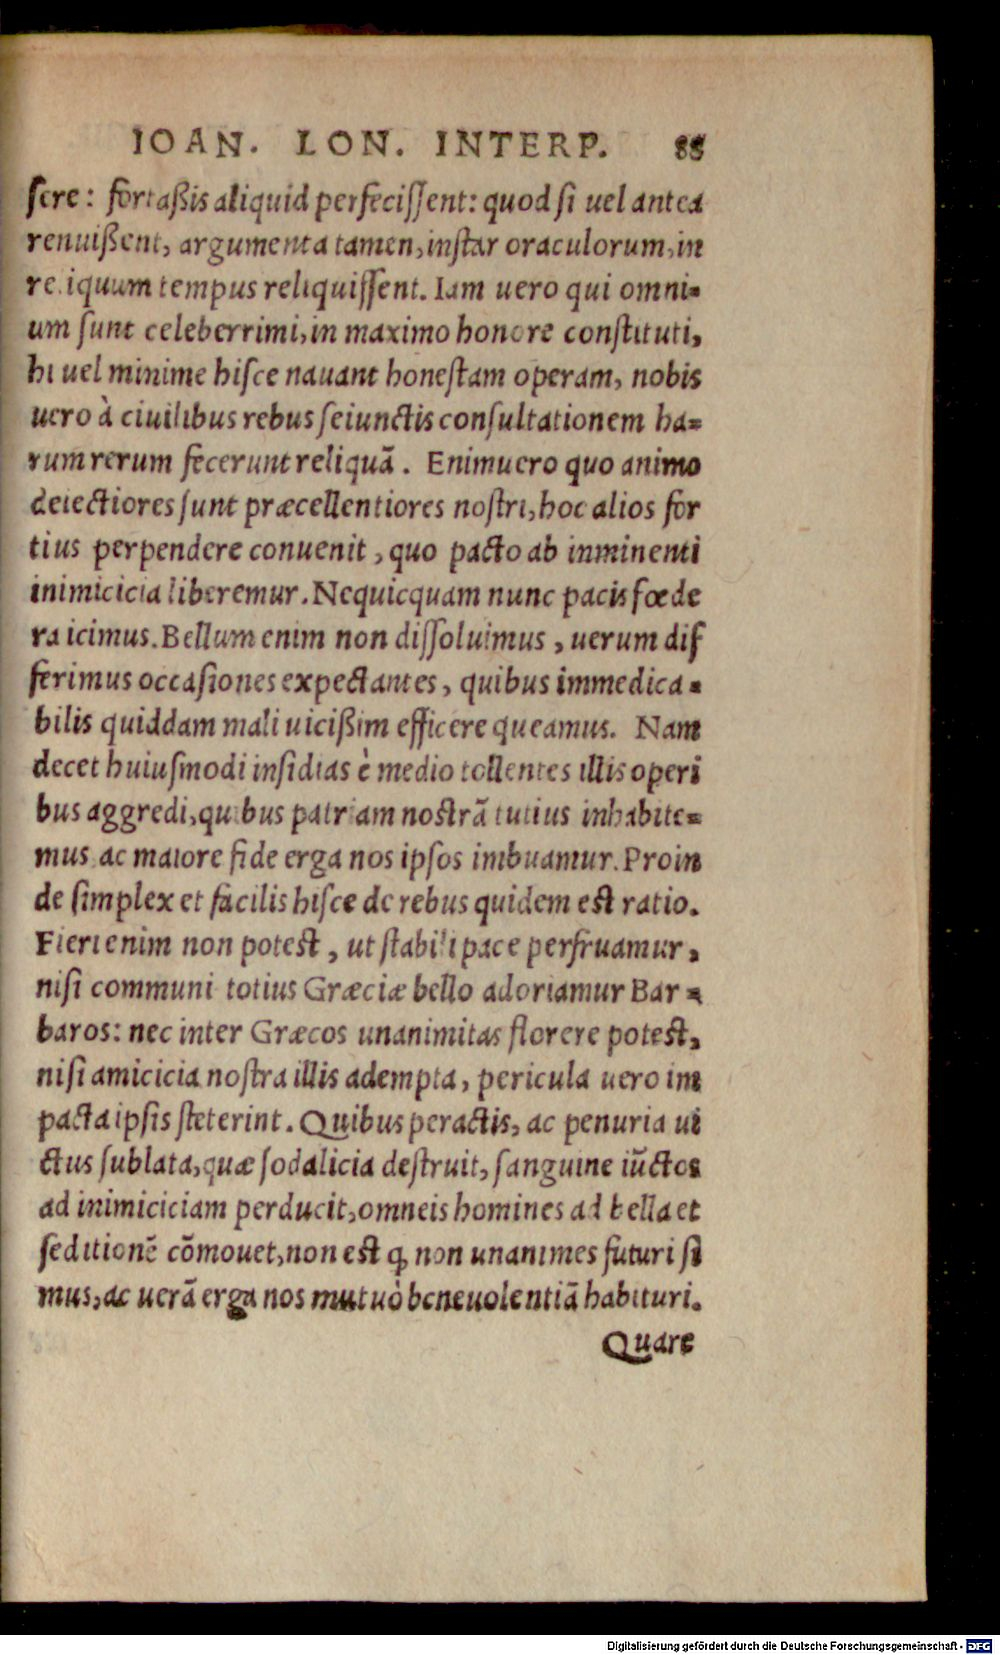 IOAN. LON. INTERP. 88
ſere: fortaßis aliquid perfeciſſent: quod ſi uel antea
renuißent, argumenta tamen, inſtar oraculorum, in
reliquum tempus reliquiſſent. Iam uero qui omni-
um ſunt celeberrimi, in maximo honore conſtituti,
hi uel minime hiſce nauant honeſtam operam, nobis
uero à ciuilibus rebus ſeiunctis conſultationem ha-
rum rerum fecerunt reliquā. Enimuero quo animo
deiectiores ſunt præcellentiores noſtri, hoc alios for
tius perpendere conuenit, quo pacto ab inminenti
inimicicia liberemur. Nequicquam nunc pacis fœde
ra icimus. Bellum enim non diſſoluimus, uerum dif
ferimus occaſiones expectantes, quibus immedica-
bilis quiddam mali uicißim efficere queamus. Nam
decet huiuſmodi inſidias è medio tollentes illis operi
bus aggredi, quibus patriam noſtrā tutius inhabite-
mus ac maiore fide erga nos ipſos imbuamur. Proin
de ſimplex et facilis hiſce de rebus quidem est ratio.
Fieri enim non potest, ut ſtabili pace perfruamur,
niſi communi totius Græciæ bello adoriamur Bar-
baros: nec inter Græcos unanimitas florere potest,
niſi amicicia noſtra illis adempta, pericula uero im
pacta ipſis ſteterint. Quibus peractis, ac penuria ui
ctus ſublata, quæ ſodalicia deſtruit, ſanguine iūctos
ad inimiciciam perducit, omneis homines ad bella et
ſeditionē cōmouet, non est ꝙ non unanimes futuri ſi
mus, ac uerā erga nos mutuò beneuolentiā habituri.
Quare
Digitalisierung gefördert durch die Deutsche Forschungsgemeinschaft - DFG